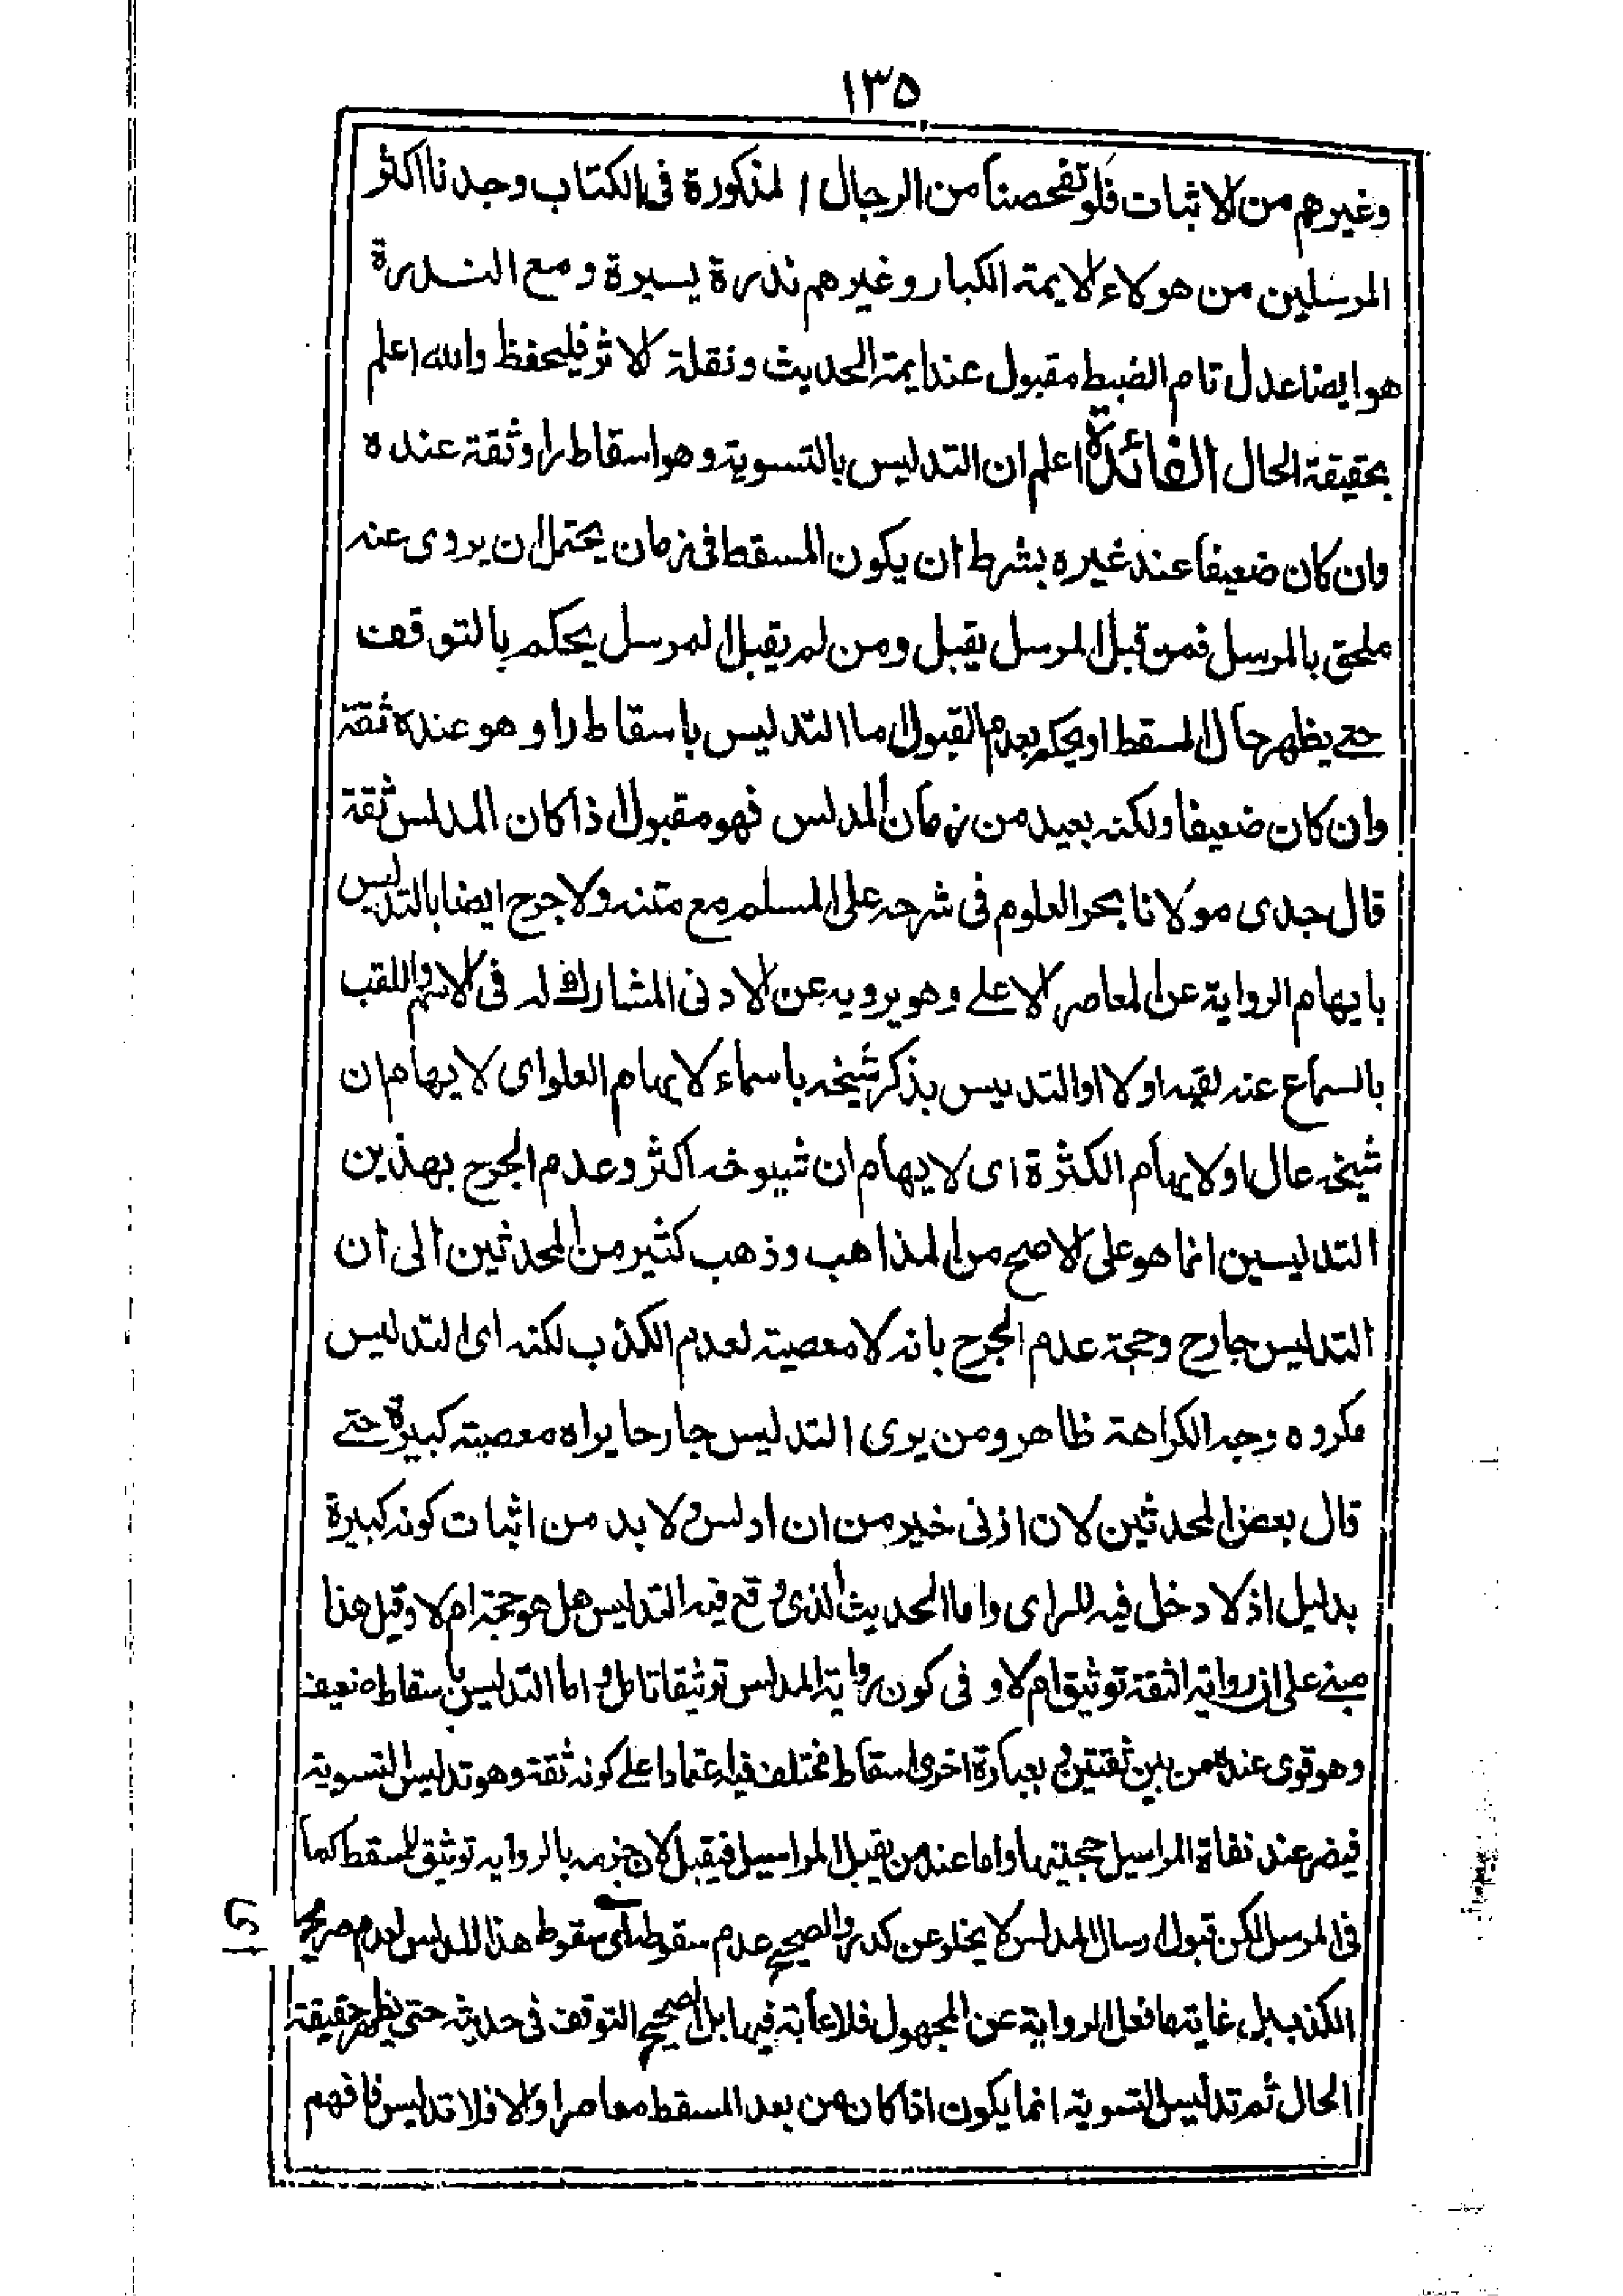 ١٣٥
وغيرهم من الاثبات فلو تفحصنا من الرجال المذكورة فى الكتاب وجدنا اكثر
المرسلين من هولاء الايمة الكبار وغيرهم ندرة يسيرة ومع الندرة
هو ايضا عدل تام الضبط مقبول عند ايمة الحديث ونقلة الاثر فليحفظ والله اعلم
بحقيقة الحال الفائدة اعلم ان التدليس بالتسوية وهو اسقاط راو ثقة عنده
وان كان ضعيفا عند غيره بشرط ان يكون المسقط فى زمان يحتمل ان يروى عنه
ملحق بالمرسل فمن قبل المرسل يقبل ومن لم يقبل المرسل يحكم بالتوقف
حتے يظهر حال المسقط او يحكم بعدم القبول اما التدليس باسقاط راو هو عنده ثقة
وان كان ضعيفا ولكنه بعيد من زمان المدلس فهو مقبول اذا كان المدلس ثقة
قال جدى مولانا بحر العلوم فى شرحه على المسلم مع متنه ولا جرح ايضا بالتدليس
بايهام الرواية عن المعاصر الاعلے وهو يرويه عن الادنى المشارك له فى الاسم واللقب
بالسماع عنه لقيه اولا او التدليس بذكر شيخه باسماء لايهام العلو اى لايهام ان
شيخه عال او لايهام الكثرة اى لايهام ان شيوخه اكثر وعدم الجرح بهذين
التدليسين انما هو على الاصح من المذاهب وذهب كثير من المحدثين الى ان
التدليس جارح وحجة عدم الجرح بانه لا معصية لعدم الكذب لكنه اى التدليس
مكروه وجه الكراهة ظاهر ومن يرى التدليس جارحا يراه معصية كبيرة حتے
قال بعض المحدثين لان ازنى خير من ان ادلس ولا بد من اثبات كونه كبيرة
بدليل اذ لا دخل فيه للراى واما الحديث الذى وقع فيه التدليس هل هو حجة ام لا وقيل هذا
مبنے على ان رواية الثقة توثيق ام لا و فى كون رواية المدلس توثيقا تامل واما التدليس باسقاط ضعيف
وهو قوى عنده من بين ثقتين و بعبارة اخرى اسقاط مختلف فيه اعتمادا علے كونه ثقة وهو تدليس التسوية
فيضر عند نفاة المراسيل حجيتها واما عند من يقبل المراسيل فيقبل لان جزمه بالرواية توثيق للمسقط كما
فى المرسل لكن قبول ارسال المدلس لا يخلو عن كدر والصحيح عدم سقوطه اى سقوط هذا المدلس لعدم صريح
الكذب بل غايتها فعل الرواية عن المجهول فلا عابة فيها بل الصحيح التوقف فى حديثه حتى يظهر حقيقة
الحال ثم تدليس التسوية انما يكون اذا كان من بعد المسقط معاصرا والا فلا تدليس فافهم